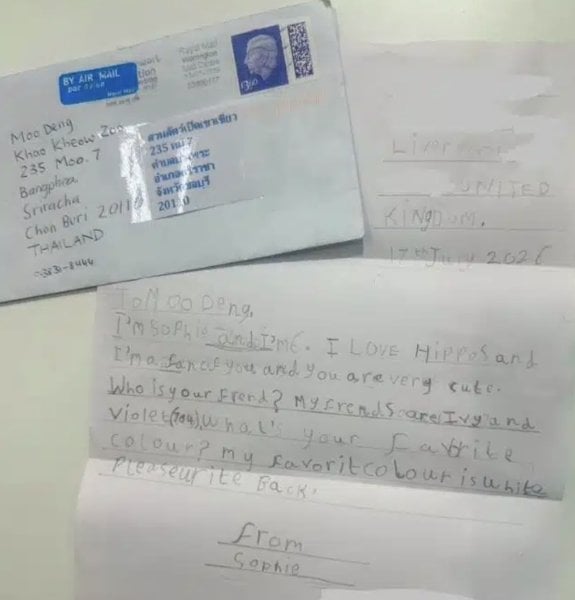 BY AIR MAIL
par avion
Royal Mail
Moo Deng
Khao Kheow Zoo
235 Moo. 7
Bangphra
Sriracha
Chon Buri 20110
THAILAND
สวนสัตว์เปิดเขาเขียว
235 หมู่ 7
ตำบลบางพระ
อำเภอศรีราชา
จังหวัดชลบุรี
20110
UNITED
KINGDOM.
17th July 2026
To Moo Deng,
I'm Sophie and I'm 6. I LOVE HippoS and
I'm a fan of you and you are very cute.
Who is your frend? My frends are Ivy and
Violet, What's your favrite
colour? my favorit colour is white
Please write Back.
from
Sophie